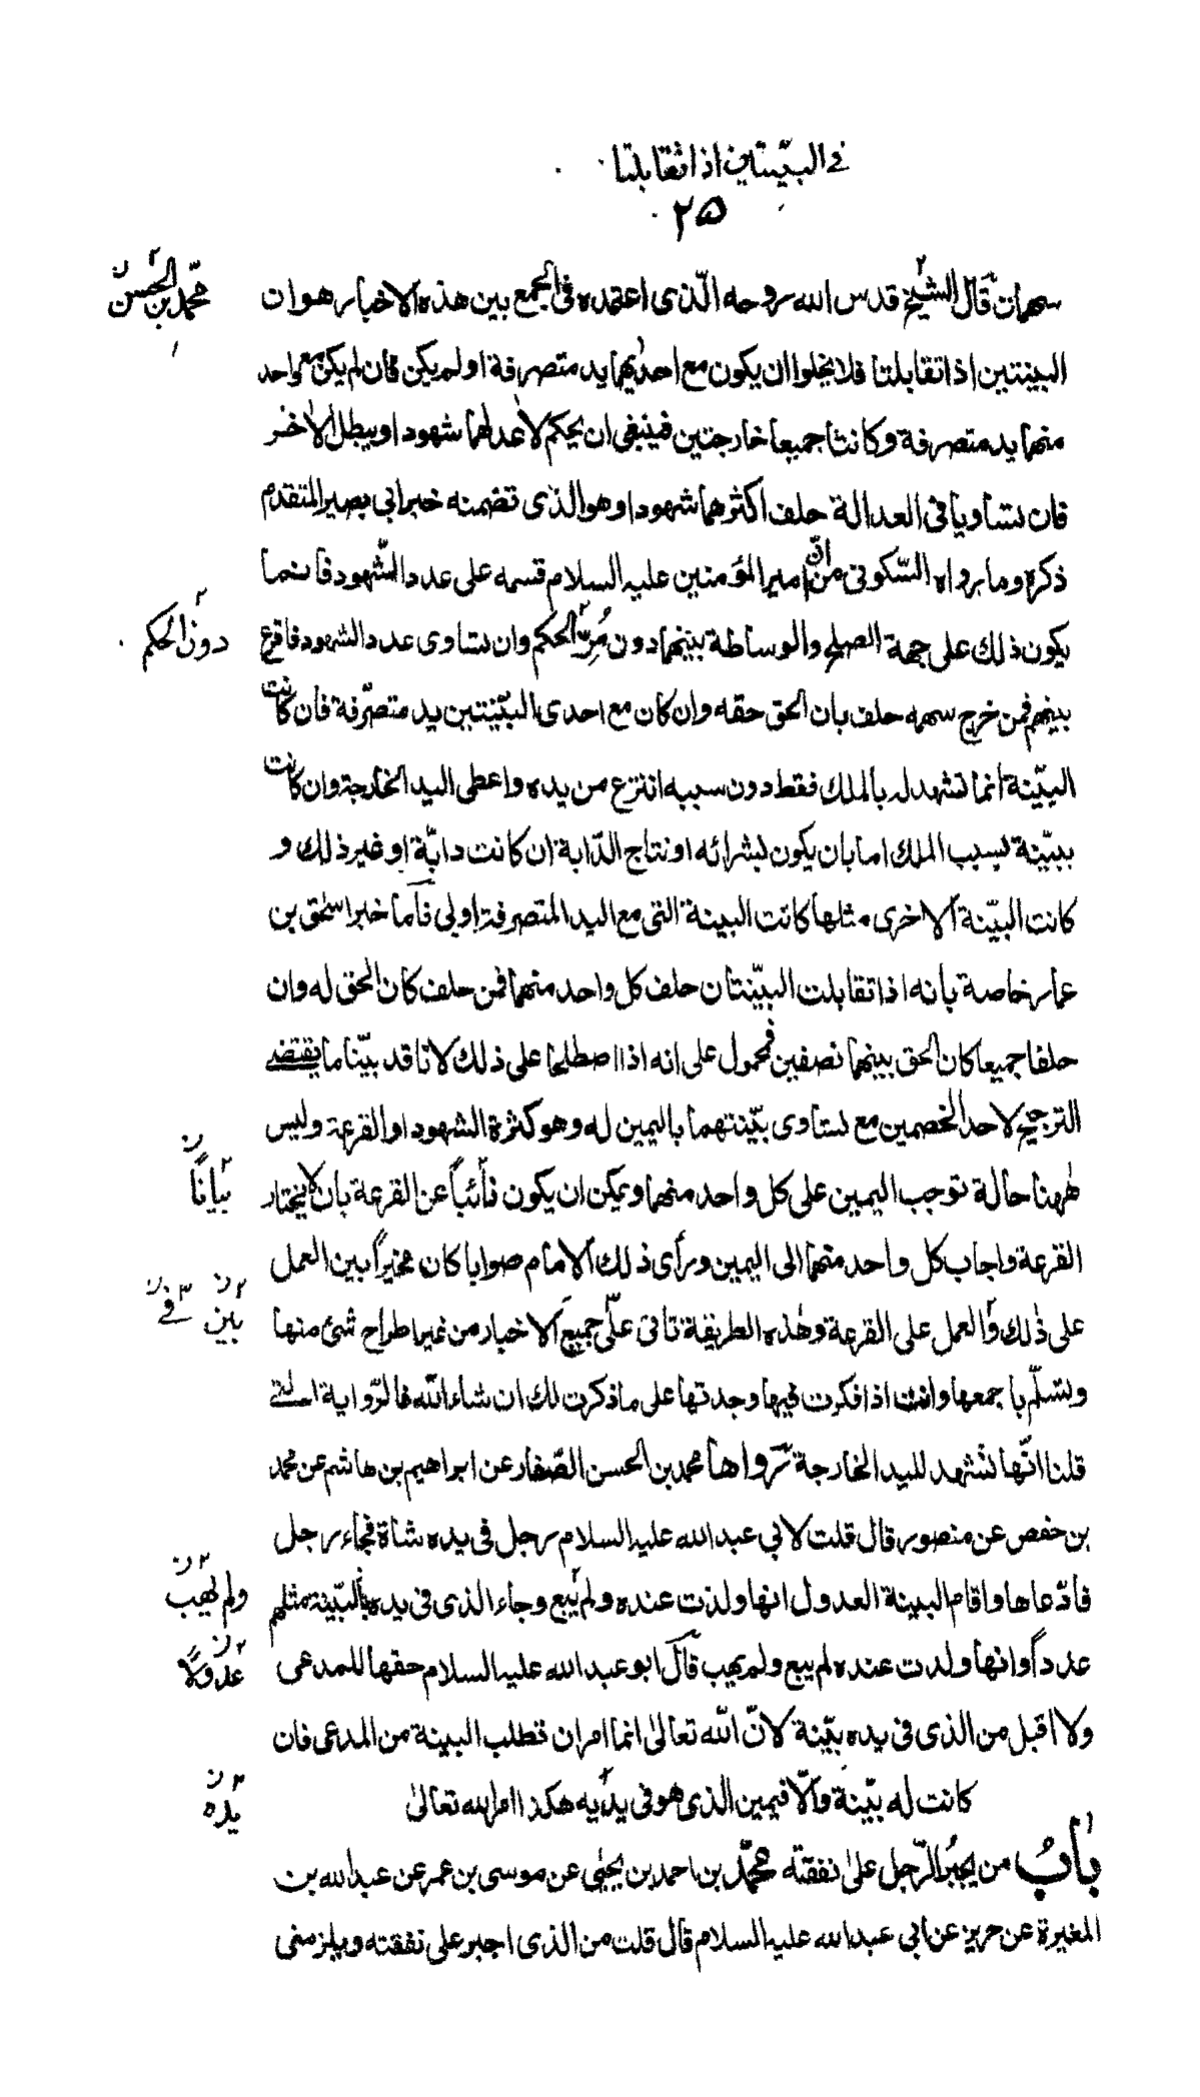 في البيّنتين اذا تقابلتا
٢٥
سهمان قال الشيخ قدس الله روحه الّذى اعتمده فى الجمع بين هذه الاخبار هو ان
محمّد بن الحسن ن
البينتين اذا تقابلتا فلا يخلوا ان يكون مع احديهما يد متصرفة اولم يكن فان لم يكن مع واحد
منهما يد متصرفة وكانتا جميعا خارجتين فينبغى ان يحكم لاعدلهما شهودا ويبطل الاخر
فان تساويا فى العدالة حلف اكثرهما شهودا وهو الذى تضمنه خبر ابى بصير المتقدم
ذكره وما رواه السّكونى من انّ امير المؤمنين عليه السلام قسمه على عدد الشّهود فانما
يكون ذلك على جهة الصلح والوساطة بينهما دون مُرّ الحكم وان تساوى عدد الشهود فاقرع
دون الحكم
بينهم فمن خرج سهمه حلف بان الحق حقه وان كان مع احدى البيّنتين يد متصرّفة فان كانت
البيّنة انما تشهد له بالملك فقط دون سببه انتزع من يده واعطى اليد الخارجة وان كانت
ببيّنة بسبب الملك اما بان يكون بشرائه او نتاج الدّابة ان كانت دابّة او غير ذلك و
كانت البيّنة الاخرى مثلها كانت البينة التى مع اليد المتصرفة اولى فاما خبر اسحٰق بن
عمار خاصة بانه اذا تقابلت البيّنتان حلف كل واحد منهما فمن حلف كان الحق له وان
حلفا جميعا كان الحق بينهما نصفين فمحمول على انه اذا اصطلحا على ذلك لانا قد بيّنا ما يقتضى
الترجيح لاحد الخصمين مع تساوى بيّنتهما باليمين له وهو كثرة الشهود او القرعة وليس
هٰهنا حالة توجب اليمين على كل واحد منهما ويمكن ان يكون نائباً عن القرعة بان لا يختار
بياناً ن
القرعة واجاب كل واحد منهما الى اليمين ورأى ذلك الامام صوابا كان مخيراً بين العمل
على ذٰلك والعمل على القرعة وهٰذه الطريقة تاتى علىٰ جميع الاخبار من غير اطراح شئ منها
بين ن في ن
وتسلّم باجمعها وانت اذا فكرت فيها وجدتها على ما ذكرت لك ان شاء الله فالرّواية التى
قلنا انّها تشهد لليد الخارجة رواها محمد بن الحسن الصّفار عن ابراهيم بن هاشم عن محمد
بن حفص عن منصور قال قلت لابي عبد الله عليه السلام رجل فى يده شاة فجاء رجل
فادّعاها واقام البينة العدول انها ولدت عنده ولم يبع وجاء الذى فى يده بالبيّنة مثلهم
ولم يهب ن
عدداً وانها ولدت عنده لم يبع ولم يهب قال ابو عبد الله عليه السلام حقها للمدعى
عدولاً ن
ولا اقبل من الذى فى يده بيّنة لانّ الله تعالىٰ انما امر ان تطلب البينة من المدعى فان
كانت له بيّنة والّا فيمين الذى هو فى يديه هكذا امر الله تعالىٰ
يده ن
بابُ من يجبر الرّجل علىٰ نفقته محمّد بن احمد بن يحيٰى عن موسى بن عمر عن عبد الله بن
المغيرة عن حريز عن ابى عبد الله عليه السلام قال قلت من الذى اجبر على نفقته ويلزمنى